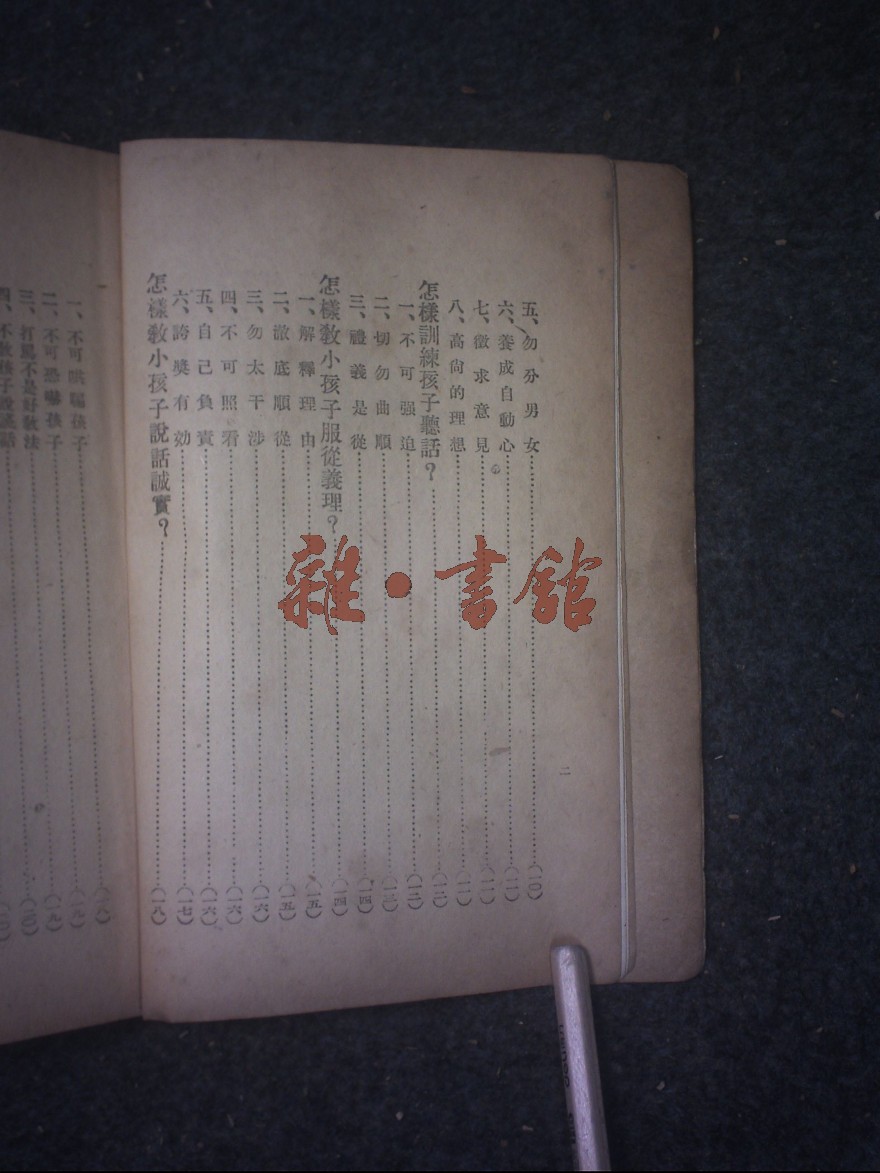 五、勿分男女……(一〇)
六、養成自動心……(一一)
七、徵求意見……(一一)
八、高尚的理想……(一一)
怎樣訓練孩子聽話？……(一二)
一、不可强追……(一二)
二、切勿曲順……(一三)
三、禮義是從……(一四)
怎樣教小孩子服從義理？……(一四)
一、解釋理由……(一五)
二、澈底順從……(一五)
三、勿太干涉……(一六)
四、不可照看……(一六)
五、自己負責……(一六)
六、誇獎有効……(一七)
怎樣教小孩子說話誠實？……(一八)
二
一、不可哄騙孩子
二、不可恐嚇孩子……(一九)
三、打罵不是好教法……(二〇)
雜·書館